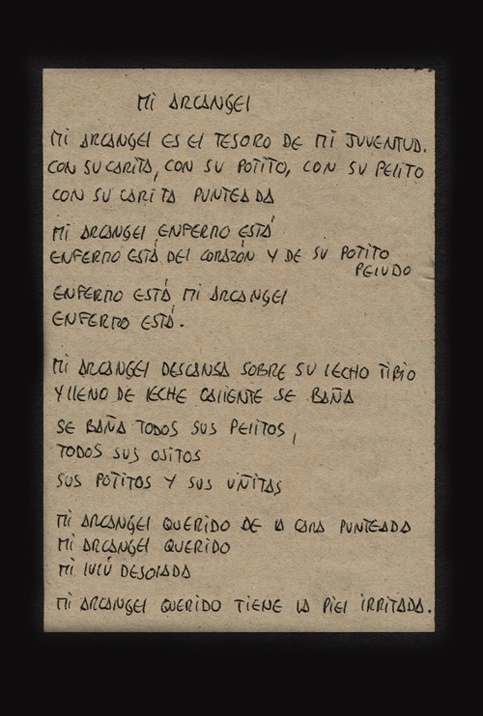 MI ARCANGEL
MI ARCANGEL ES EL TESORO DE MI JUVENTUD.
CON SU CARITA, CON SU POTITO, CON SU PELITO
CON SU CARITA PUNTEADA
MI ARCANGEL ENFERMO ESTÁ
ENFERMO ESTÁ DEL CORAZÓN Y DE SU POTITO
PELUDO
ENFERMO ESTÁ MI ARCANGEL
ENFERMO ESTÁ.
MI ARCANGEL DESCANSA SOBRE SU LECHO TIBIO
Y LLENO DE LECHE CALIENTE SE BAÑA
SE BAÑA TODOS SUS PELITOS,
TODOS SUS OJITOS
SUS POTITOS Y SUS UÑITAS
MI ARCANGEL QUERIDO DE LA CARA PUNTEADA
MI ARCANGEL QUERIDO
MI LULÚ DESOLADA
MI ARCANGEL QUERIDO TIENE LA PIEL IRRITADA.